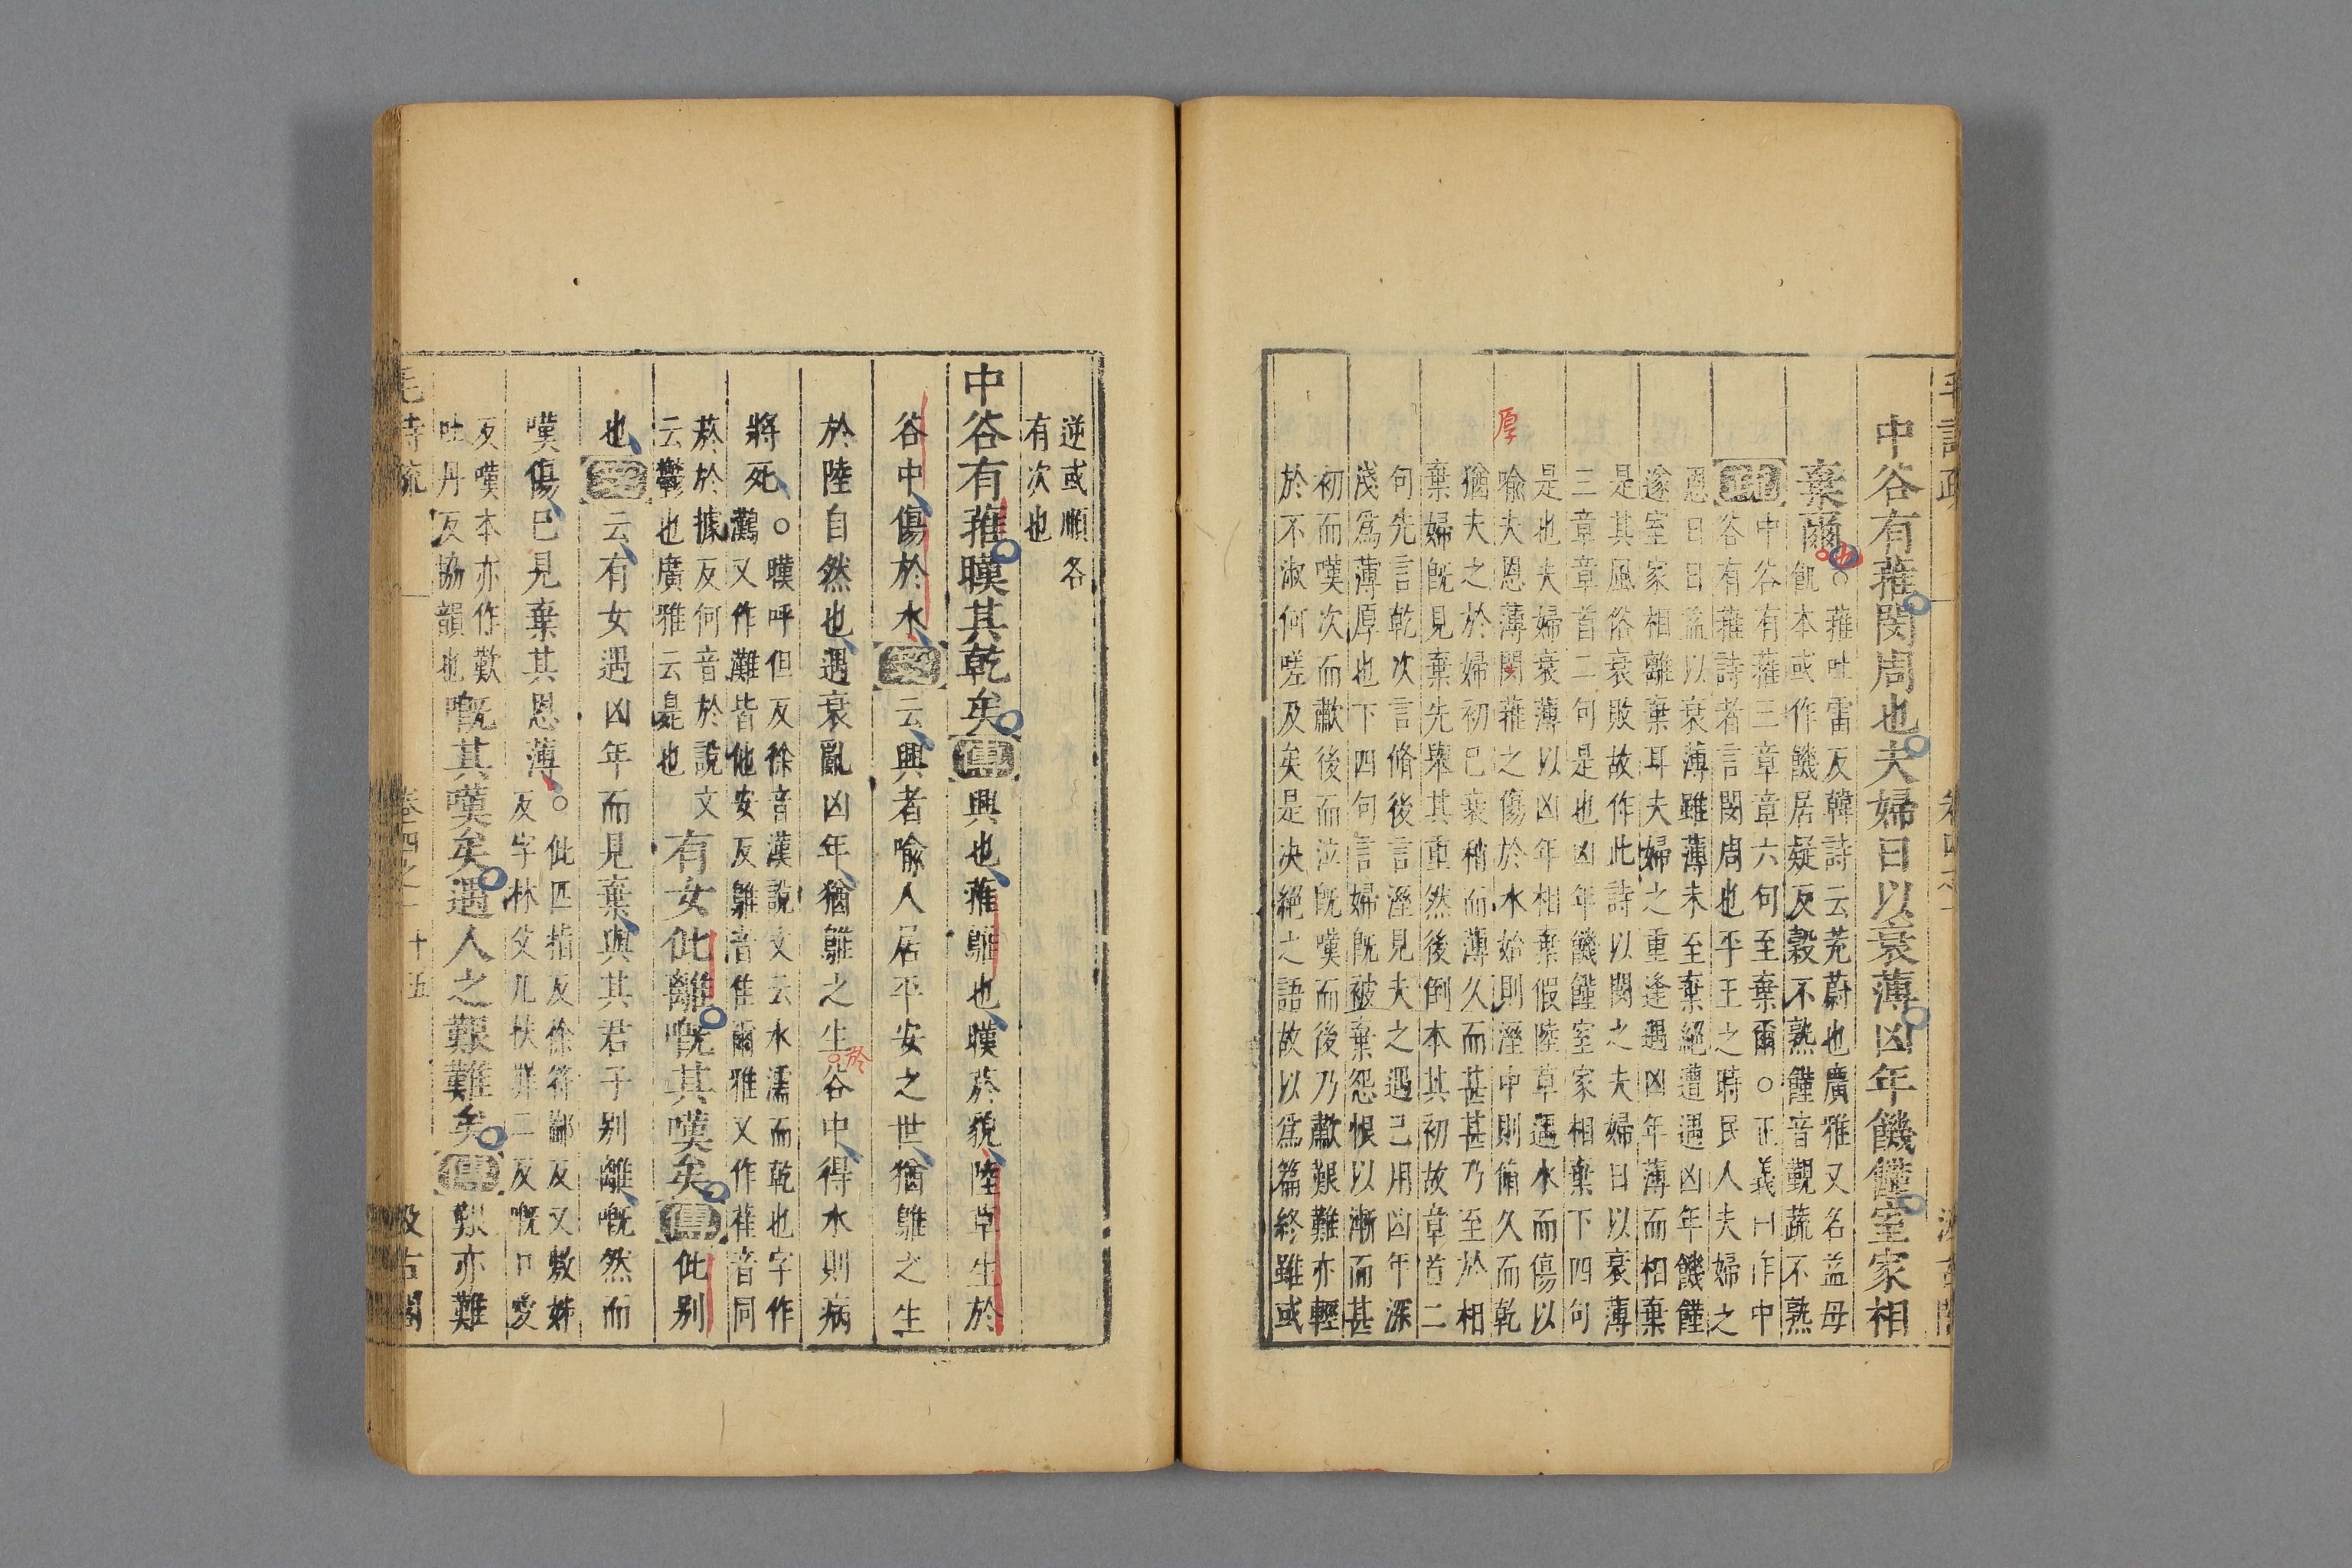 中谷有蓷閔周也夫婦日以衰薄凶年饑饉室家相
棄爾
也
蓷吐雷反韓詩云茺蔚也廣雅又名益母
飢本或作饑居疑反穀不熟饉音覲蔬不熟
疏
中谷有蓷三章章六句至棄爾○正義曰作中
谷有蓷詩者言閔周也平王之時民人夫婦之
恩日日益以衰薄雖薄未至棄絕遭遇凶年饑饉
遂室家相離棄耳夫婦之重逢遇凶年薄而相棄
是其風俗衰敗故作此詩以閔之夫婦日以衰薄
三章章首二句是也凶年饑饉室家相棄下四句
是也夫婦衰薄以凶年相棄假陸草遇水而傷以
喻夫恩薄閔蓷之傷於水始則溼中則脩久而乾
厚
猶夫之於婦初已衰稍而薄久而甚甚乃至於相
棄婦既見棄先舉其重然後倒本其初故章首二
句先言乾次言脩後言溼見夫之遇己用凶年深
淺爲薄厚也下四句言婦既被棄怨恨以漸而甚
初而嘆次而歗後而泣既嘆而後乃歗艱難亦輕
於不淑何嗟及矣是決絕之語故以爲篇終雖或
逆或順各
有次也
中谷有蓷暵其乾矣傳興也蓷鵻也暵菸貌陸草生於
谷中傷於水箋云興者喻人居平安之世猶鵻之生
於陸自然也遇衰亂凶年猶鵻之生谷中得水則病
於
將死○暵呼但反徐音漢說文云水濡而乾也字作
灘又作灘皆他安反鵻音隹爾雅又作萑音同
菸於據反何音於說文
云鬱也廣雅云是也
有女仳離嘅其嘆矣傳仳別
也箋云有女遇凶年而見棄與其君子別離嘅然而
嘆傷已見棄其恩薄○仳匹指反徐符鄙反又敷姊
反字林父几扶罪二反嘅口愛
反嘆本亦作歎
吐丹反協韻也
嘅其嘆矣遇人之艱難矣傳艱亦難
毛詩疏 卷四之一 十五 汲古閣